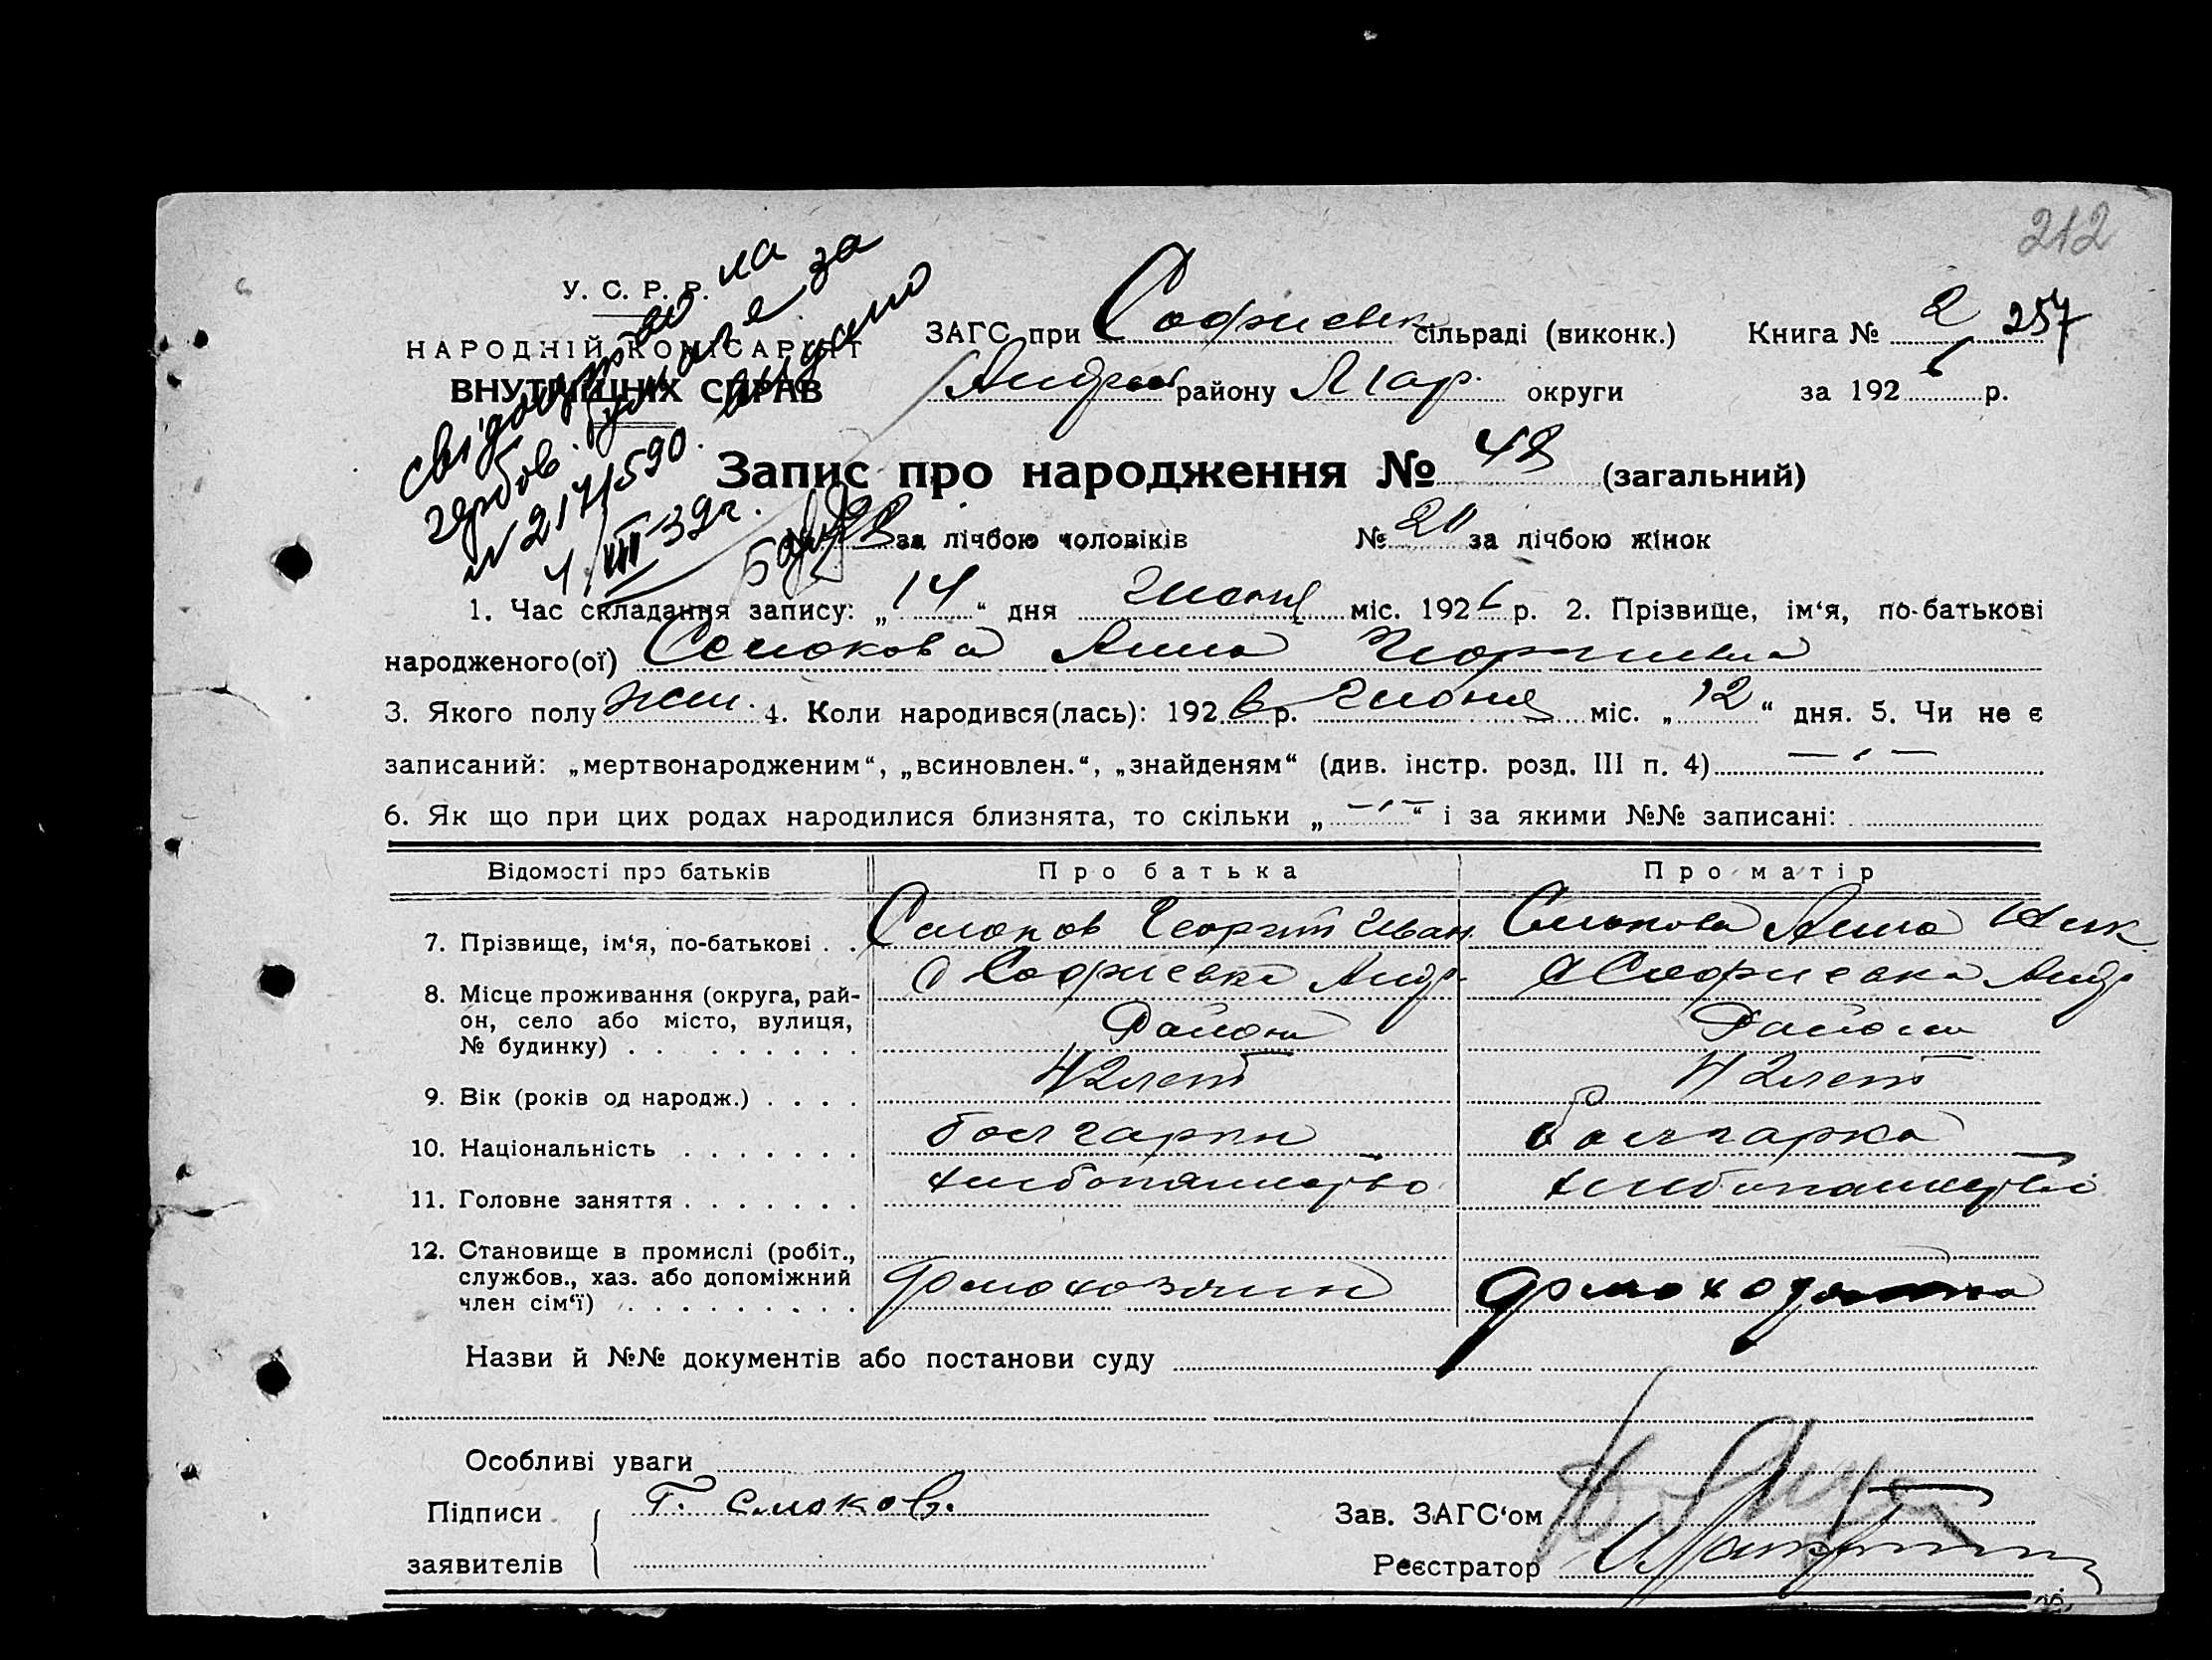 212
У. С. Р. Р.
НАРОДНІЙ КОМІСАРІЯТ
ВНУТРІШНИХ СПРАВ
свідоцтво на
гербов. бумаге за
№ 217/590. видано
4/VIII 39 г.
ЗАГС при Софиевк сільраді (виконк.) Книга № 2 257
Андр районy Мар. округи за 1926 р.
Запис про народження № 48 (загальний)
за лічбою чоловіків № 20 за лічбою жінок
1. Час складання запису: „14“ дня Июня міс. 1926 р. 2. Прізвище, ім‘я, по-батькові
народженого(ої) Семокова Анна Георгиевна
3. Якого полу жен. 4. Коли народився(лась): 1926 р. Июня міс. „12“ дня. 5. Чи не є
записаний: „мертвонародженим“, „всиновлен.“, „знайденям“ (див. інстр. розд. III п. 4)
6. Як що при цих родах народилися близнята, то скільки „ “ і за якими №№ записані:
Відомості про батьків Про батька Про матір
7. Прізвище, ім‘я, по-батькові . . Семоков Георгий Иван Семокова Анна Ник
8. Місце проживання (округа, рай- с Софиевка Андр. с Софиевка Андр
он, село або місто, вулиця, Района Района
№ будинку) . . . . . . . . .
9. Вік (років од народж.) . . . . 42 лет 42 лет
10. Національність . . . . . . . болгарин болгарка
11. Головне заняття . . . . . . . хлебопашество хлебопашество
12. Становище в промислі (робіт.,
службов., хаз. або допоміжний домохозяин домохозяйка
член сім‘ї) . . . . . . . . .
Назви й №№ документів або постанови суду
Особливі уваги
Підписи Г. Смоков.
заявителів
Зав. ЗАГС‘ом
Реєстратор